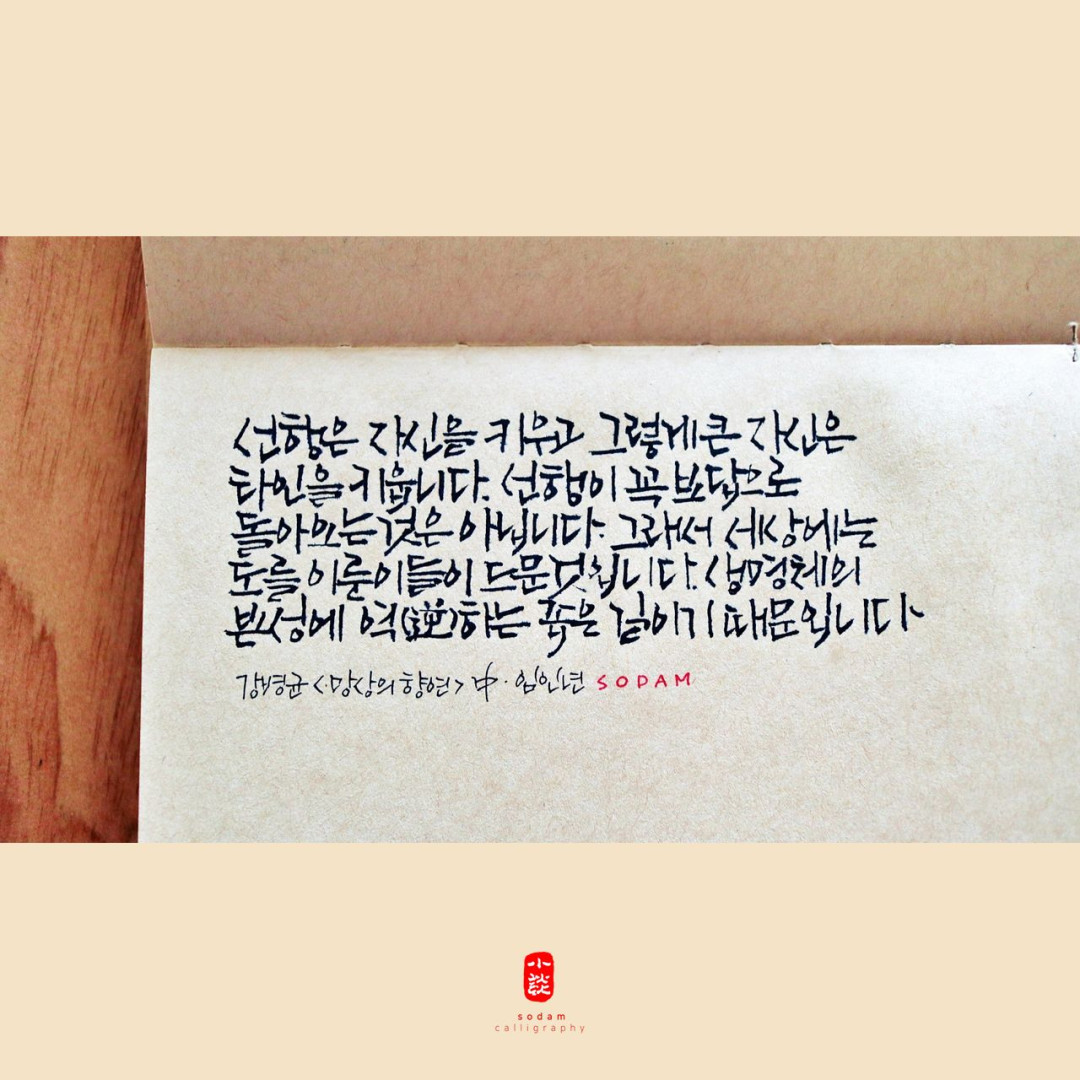 선행은 자신을 키우고 그렇게 큰 자신은
타인을 키웁니다. 선행이 꼭 보답으로
돌아오는 것은 아닙니다. 그래서 세상에는
도를 이룬이들이 드문것입니다. 생명체의
본성에 역(逆)하는 좁은 길이기 때문입니다
강병균 <망상의 향연> 中 · 임인년 SODAM
小談
sodam
calligraphy